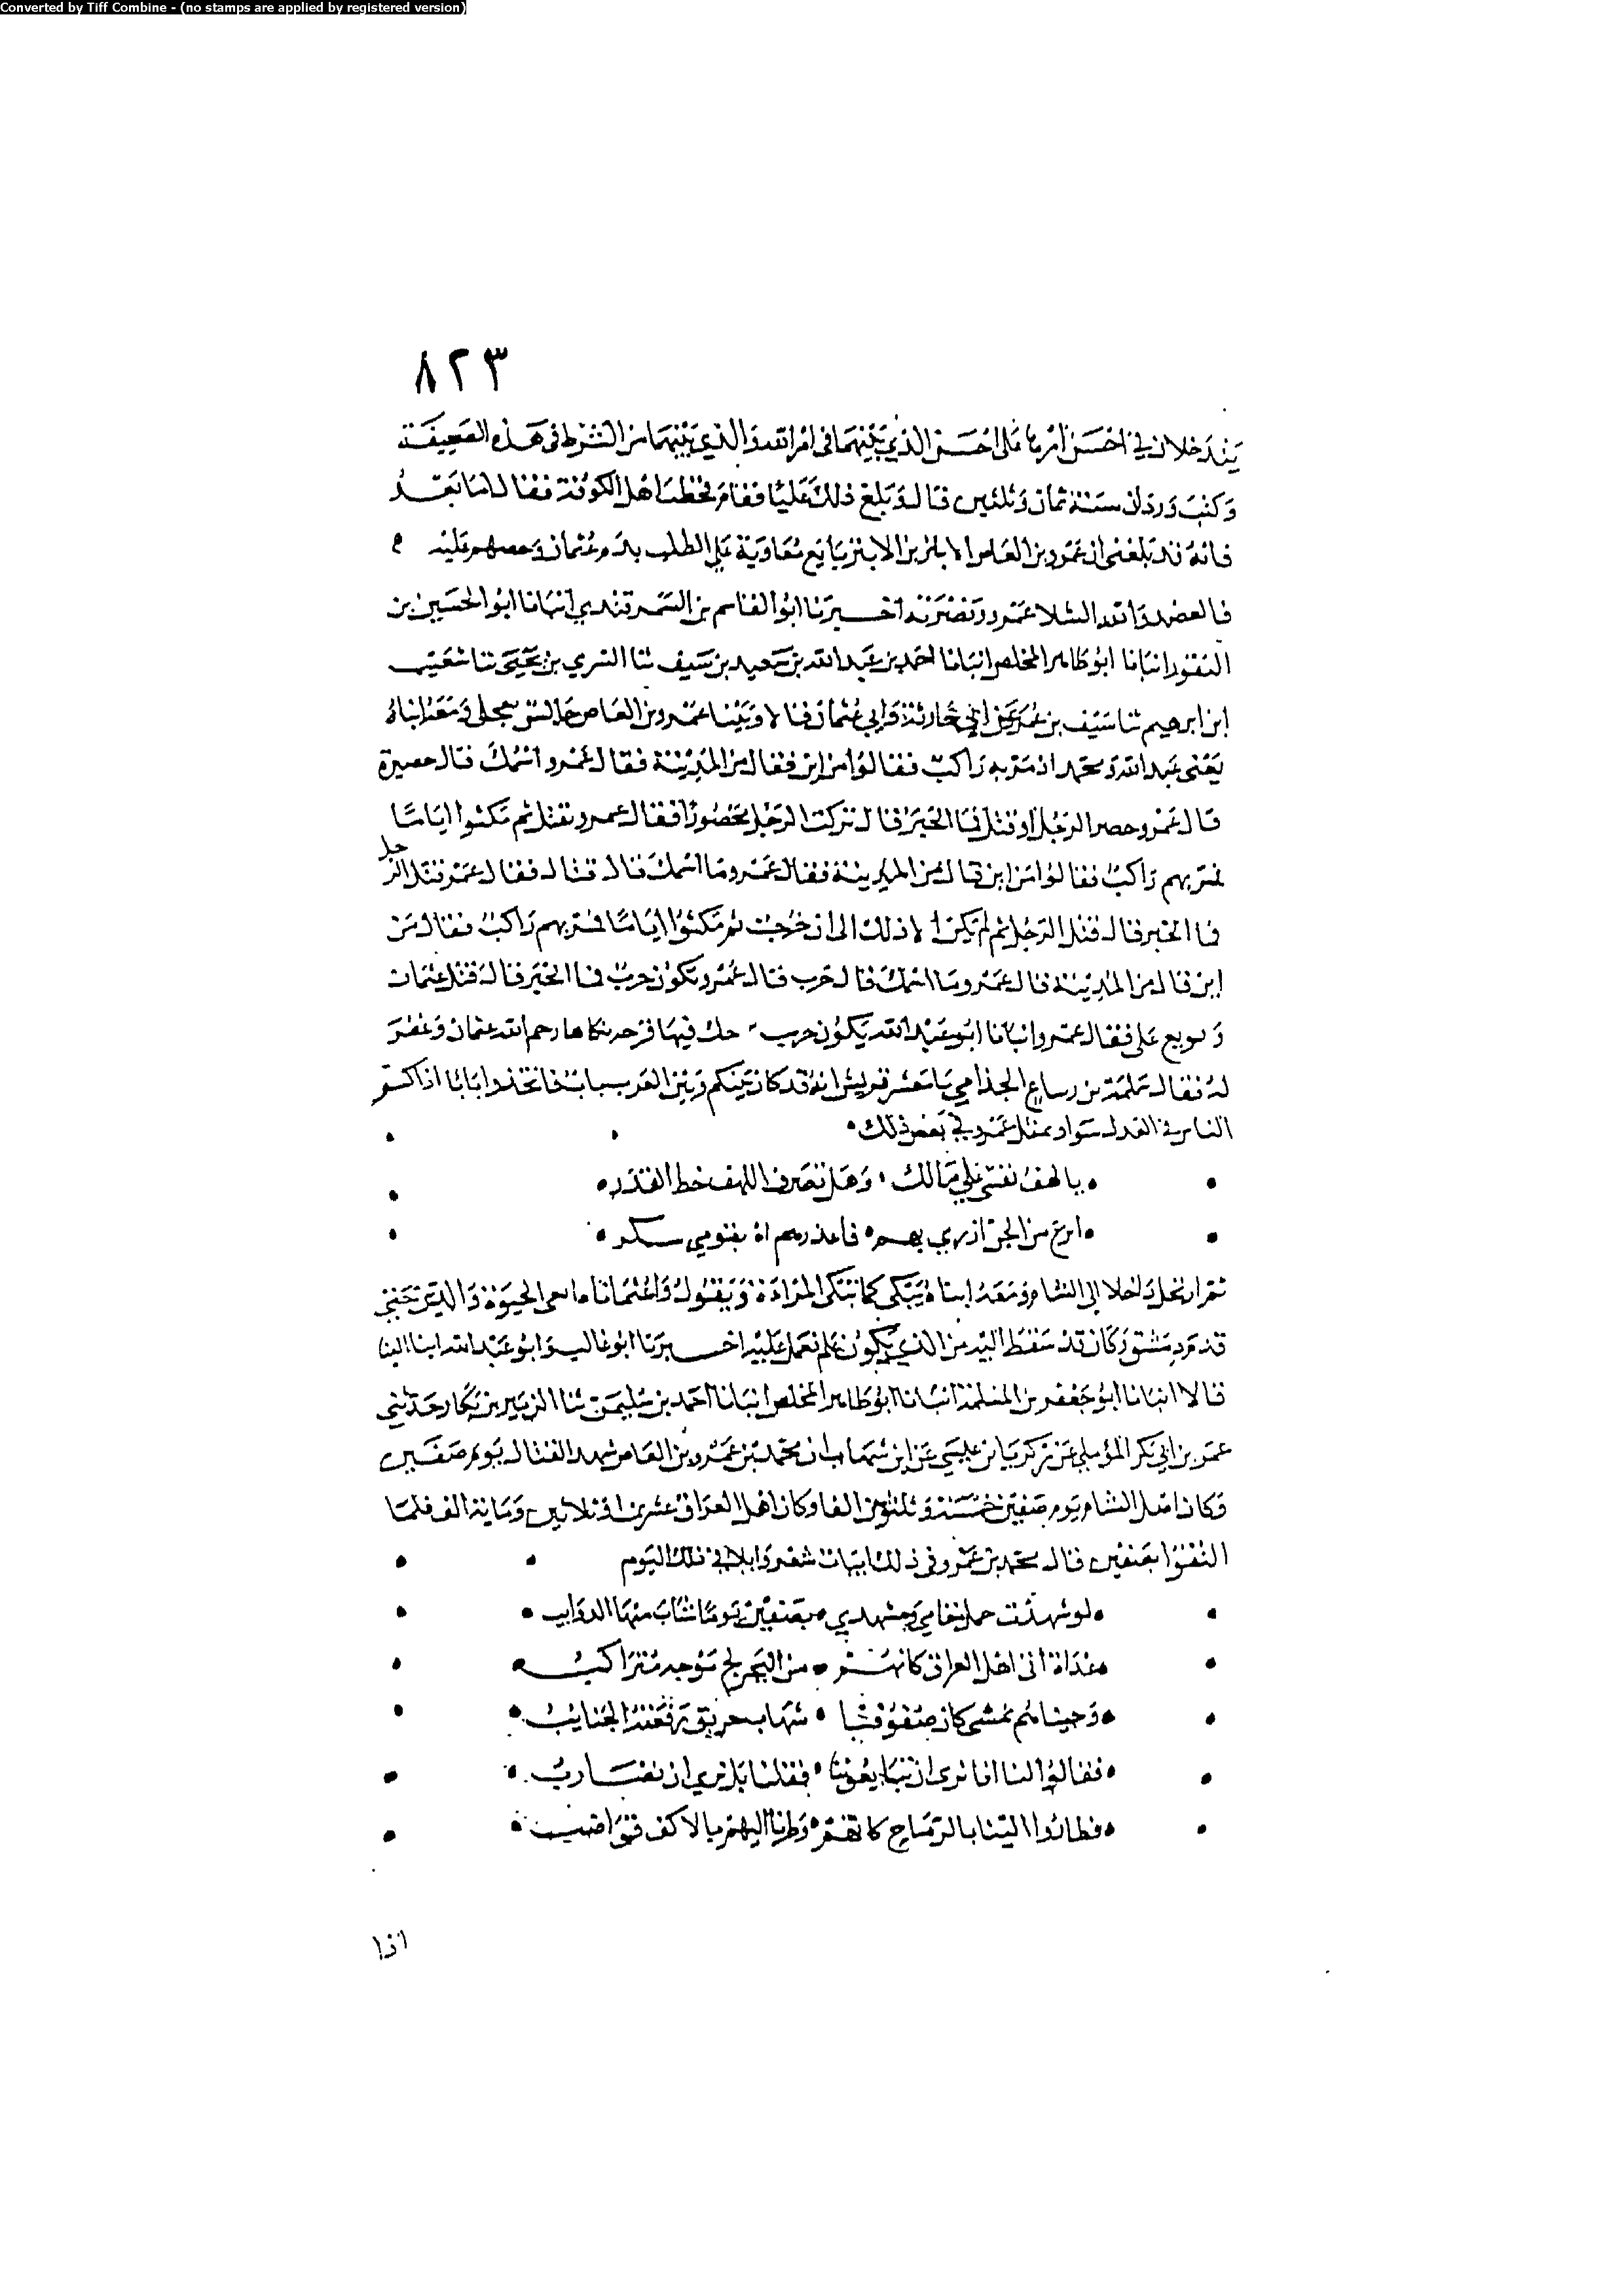 Converted by Tiff Combine - (no stamps are applied by registered version)
٨٢٣
يتدخلان في احسن امرها على احسن الذي بينهما في امر الله والذي بينهما من الشرط في هذه الصحيفة
وكتب وردان سنة ثمان وثلثين قال وبلغ ذلك عليا فقام فخطب اهل الكوفة فقال اما بعد
فانه قد بلغني ان عمرو بن العاص الابتر بن الابتر بايع معاوية على الطلب بدم عثمان وحضهم عليه
فالعضد والله الشلا عمرو ونصرته اخبرنا ابو القاسم بن السمرقندي انبانا ابو الحسين بن
النقور انبانا ابو طاهر المخلص انبانا احمد بن عبد الله بن سعيد بن سيف ثنا السري بن يحيى ثنا شعيب
ابن ابرهيم ثنا سيف بن عمر عن ابي حارثة وابي عثمان قالا وبينا عمرو بن العاص جالس بعجلى ومعه ابناه
يعني عبد الله ومحمد اذ مر به راكب فقالوا من اين فقال من المدينة فقال عمرو ما اسمك قال حصيرة
قال عمرو حصر الرجل او قتل فما الخبر قال تركت الرجل محصورا فقال عمرو يقتل ثم مكثوا اياما
فمر بهم راكب فقالوا من اين قال من المدينة فقال عمرو ما اسمك قال قتال فقال عمرو قتل الرجل
فما الخبر قال قتل الرجل ثم لم يكن الا ذلك الى ان خرجت ثم مكثوا اياما فمر بهم راكب فقال من
اين قال من المدينة قال عمرو ما اسمك قال حرب قال عمرو يكون حرب فما الخبر قال قتل عثمان
وبويع على فقال عمرو انبانا ابو عبد الله يكون حرب حك فيها قرحة نكاها رحم الله عثمان وغفر
له فقال سلمة بن الجذامي يا معشر قريش انه قد كان بينكم وبين العرب باب فاتخذوا بابا اذا كسر
الناس في العدل سواء وتمثل عمرو في بعض ذلك
يا لهف نفسي على مالك وهل تصرف اللهف خط القدر
انزع من الحر ازرى بهم فاعذرهم ام بقومي سكر
ثم ارتحل داخلا الى الشام ومعه ابناه يبكي كما تبكى المراة ويقول واعثماناه انعى الحيوة والدين حتى
قدم دمشق وكان قد سقط اليه من الذي يكون علم فعمل عليه اخبرنا ابو غالب وابو عبد الله ابنا البنا
قالا انبانا ابو جعفر بن المسلمة انبانا ابو طاهر المخلص انبانا احمد بن سليمن ثنا الزبير بن بكار حدثني
عمر بن ابي بكر المؤملي عن زكريا بن عيسى عن ابن شهاب ان محمد بن عمرو بن العاص شهد القتال يوم صفين
وكان اهل الشام يوم صفين خمسة وثلثين الفا وكان اهل العراق عشرين او ثلاثين ومائة الف فلما
التقوا بصفين قال محمد بن عمرو في ذلك ابيات شعر وابلا في ذلك اليوم
لو شهدت جمل مقامي ومشهدي بصفين يوما شاب منها الذوايب
غداة اتى اهل العراق كانهم من البحر لج موجه متراكب
وجيناهم نمشي كان صفوفنا شهاب حريق رفعته الجنايب
فقالوا لنا انا نرى ان تبايعوا فقلنا بل نرى ان نضارب
فطاروا الينا بالرماح كماتهم وطرنا اليهم بالاكف قواضب
اذا